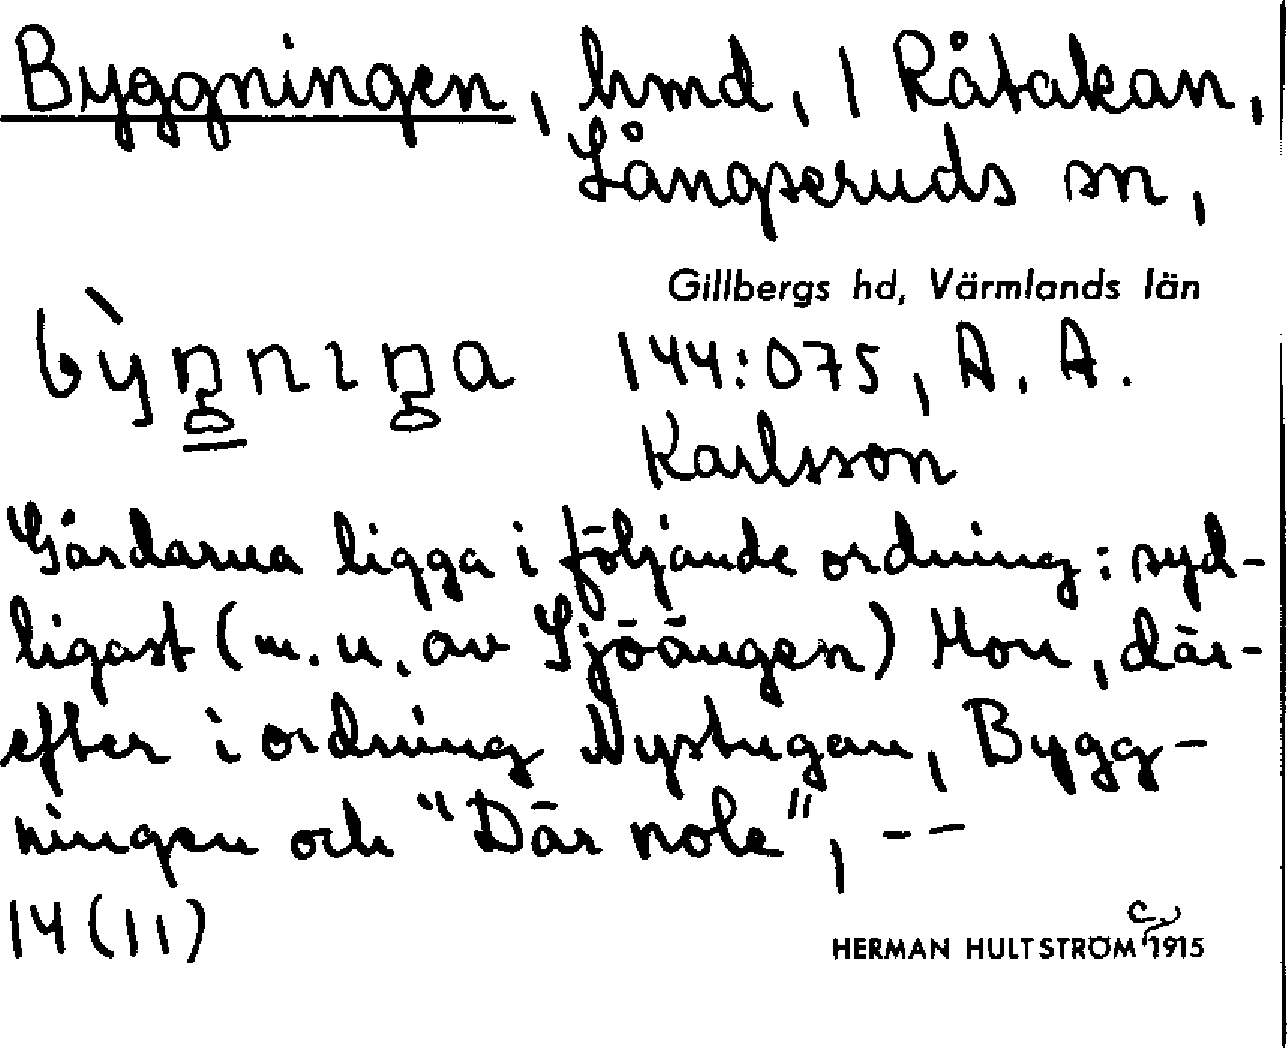 Byggningen, hmd, 1 Råtakan,
Långseruds sn,
Gillbergs hd, Värmlands län
bỳŋnıŋa 144:075, A. A.
Karlsson
Gårdarna ligga i följande ordning: syd-
ligast (m. u. av Sjöängen) Mon, där-
efter i ordning Nystugan, Bygg-
ningen och "Där nole", --
14 (11)
HERMAN HULTSTRÖM C 1915